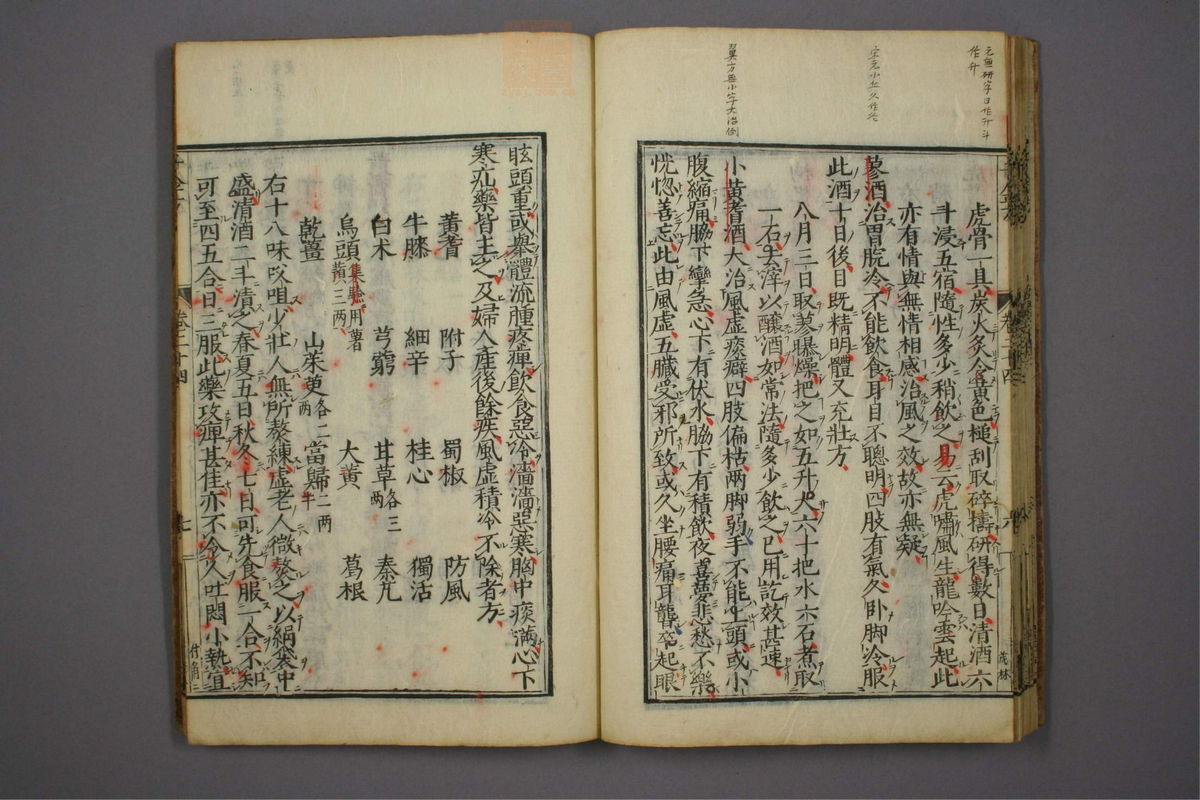 元無研字日作升斗
作升
宋元小五久作冷
翼方無小字大治倒
虎骨一具炭火炙令黃色槌刮取碎擣研得數日清酒六
斗浸五宿隨性多少稍飲之易云虎嘯風生龍吟雲起此
亦有情與無情相感治風之效故亦無疑
蓼酒治胃脘冷不能飲食耳目不聰明四肢有氣久臥脚冷服
此酒十日後目既精明體又充壯方
八月三日取蓼曝燥把之如五升大六十把水六石煮取
一石去滓以醸酒如常法隨多少飲之已用訖效甚速
小黃耆酒大治風虛痰癖四肢偏枯兩脚弱手不能上頭或小
腹縮痛脇下攣急心下有伏水脇下有積飲夜喜夢悲愁不樂
恍惚善忘此由風虛五臟受邪所致或久坐腰痛耳聾卒起眼
卷三十四
六
茂林
眩頭重或舉體流腫疼痺飲食惡冷濇濇惡寒胸中痰滿心下
寒疝藥皆主之及婦人產後餘疾風虛積冷不除者方
黃耆 附子 蜀椒 防風
牛膝 細辛 桂心 獨活
白朮 芎藭 甘草各三兩 秦艽
烏頭集驗用薯蕷三兩 大黃 葛根
乾薑 山茱萸各二兩 當歸二兩半
右十八味㕮咀少壯人無所熬練虛老人微熬之以絹袋中
盛清酒二斗漬之春夏五日秋冬七日可先食服一合不知
可至四五合日三服此藥攻痺甚佳亦不令人吐悶小熱宜
卷三十四
七